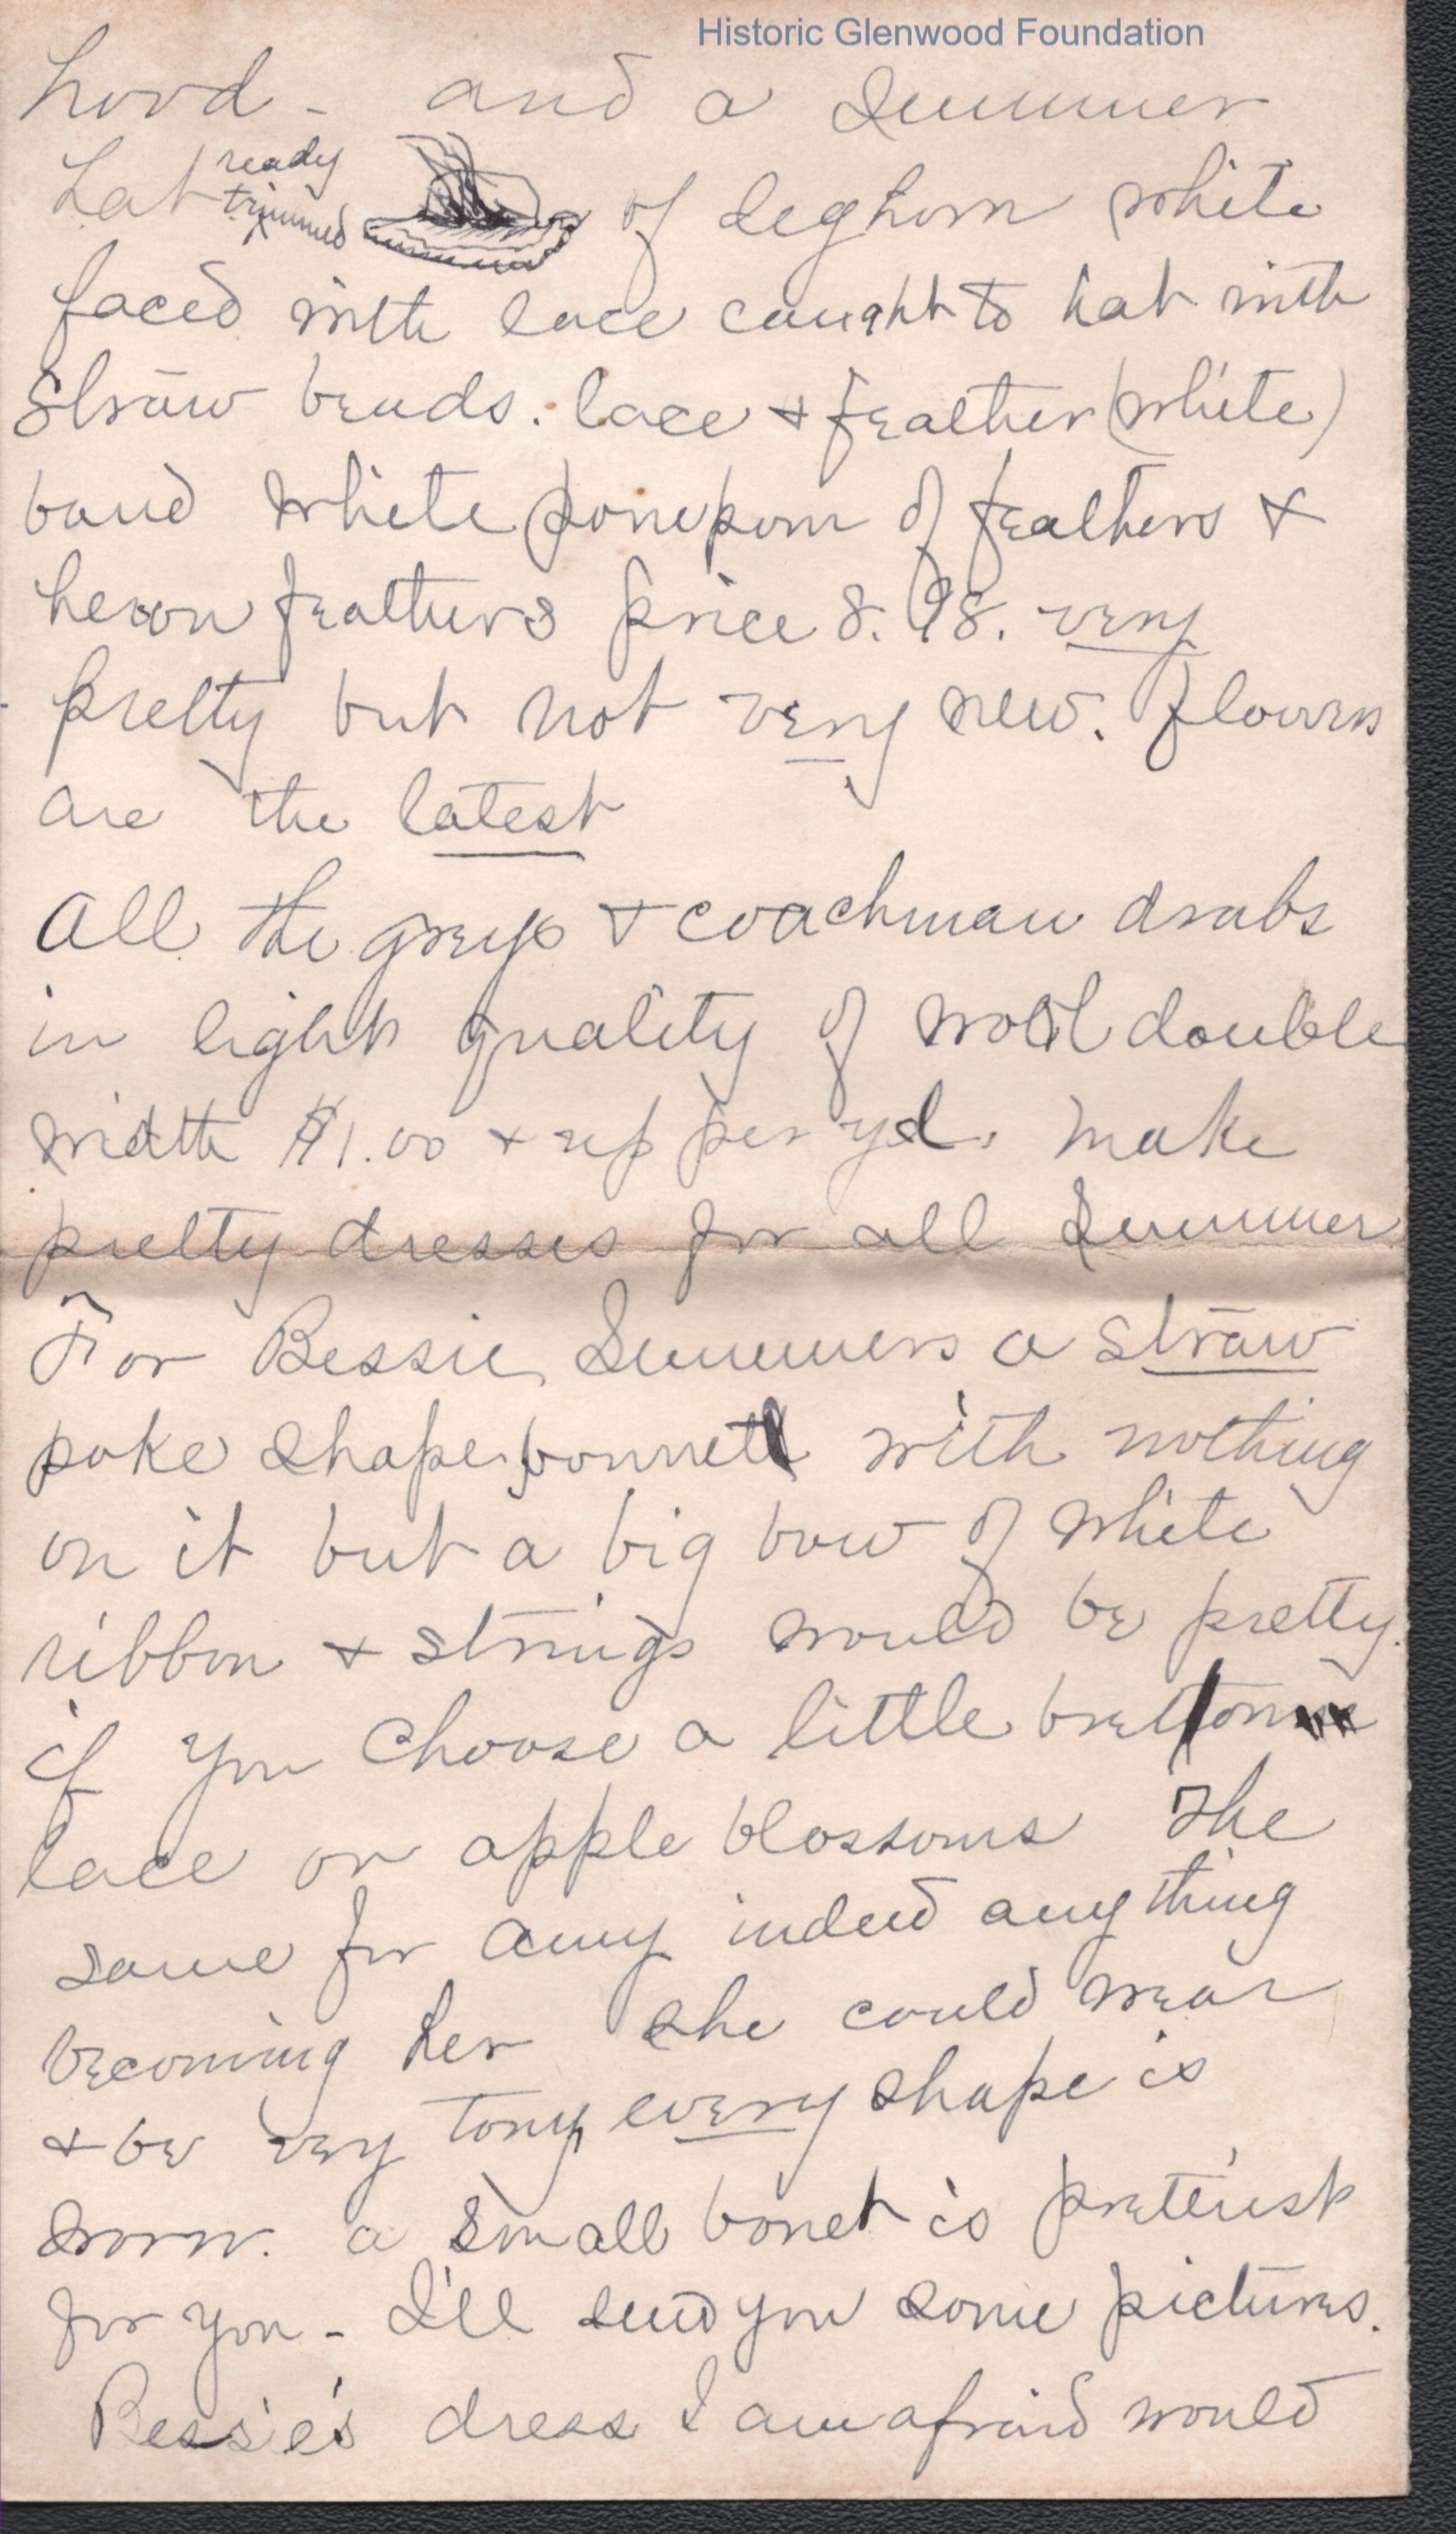 Historic Glenwood Foundation
hood - and a Summer
hat ready trimmed of leghorn white
faced with lace caught to hat with
Straw beads. lace & feather (white)
band white pompom of feathers &
heron feathers price 8.98. very
pretty but not very new. flowers
are the latest
All the greys & coachman drabs
in light quality of wool double
width $1.00 & up per yd. make
pretty dresses for all Summer
For Bessie Summers a straw
poke shape bonnet with nothing
on it but a big bow of white
ribbon & strings would be pretty.
if you choose a little bretton
lace or apple blossoms The
same for Amy indeed any thing
becoming her she could wear
& be very tony every shape is
worn. a small bonet is pretiest
for you - I'll send you some pictures.
Bessie's dress I am afraid would